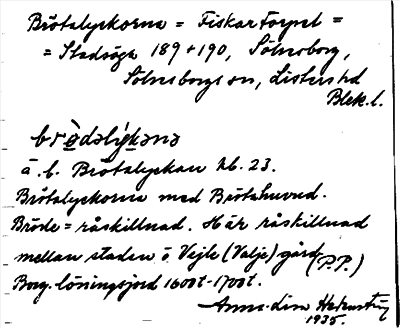 Brötalyckorna = Fiskartorpet =
= Stadsäga 189 + 190, Sölvesborg,
Sölvesborgs sn, Listers hd
Blek. l.
brødəlykənə
ä. b. Brötalyckan kb. 23.
Brötalyckorna med Brötahuvud.
Bröde = råskillnad. Här råskillnad
mellan staden o. Vejle (Valje) gård (P.P.)
Borg. lösningsjord 1600t - 1700t.
Anna-Lisa
1935.